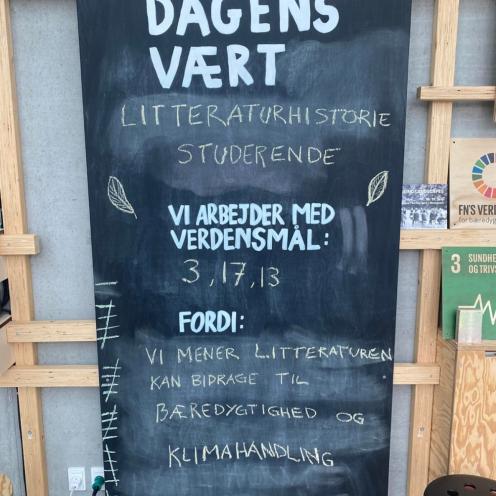 DAGENS
VÆRT
LITTERATURHISTORIE
STUDERENDE
VI ARBEJDER MED
VERDENSMÅL:
3, 17, 13
FORDI:
VI MENER LITTERATUREN
KAN BIDRAGE TIL
BÆREDYGTIGHED OG
KLIMAHANDLING
FN'S VER
for bæredyg
3 SUNDHE
OG TRIV